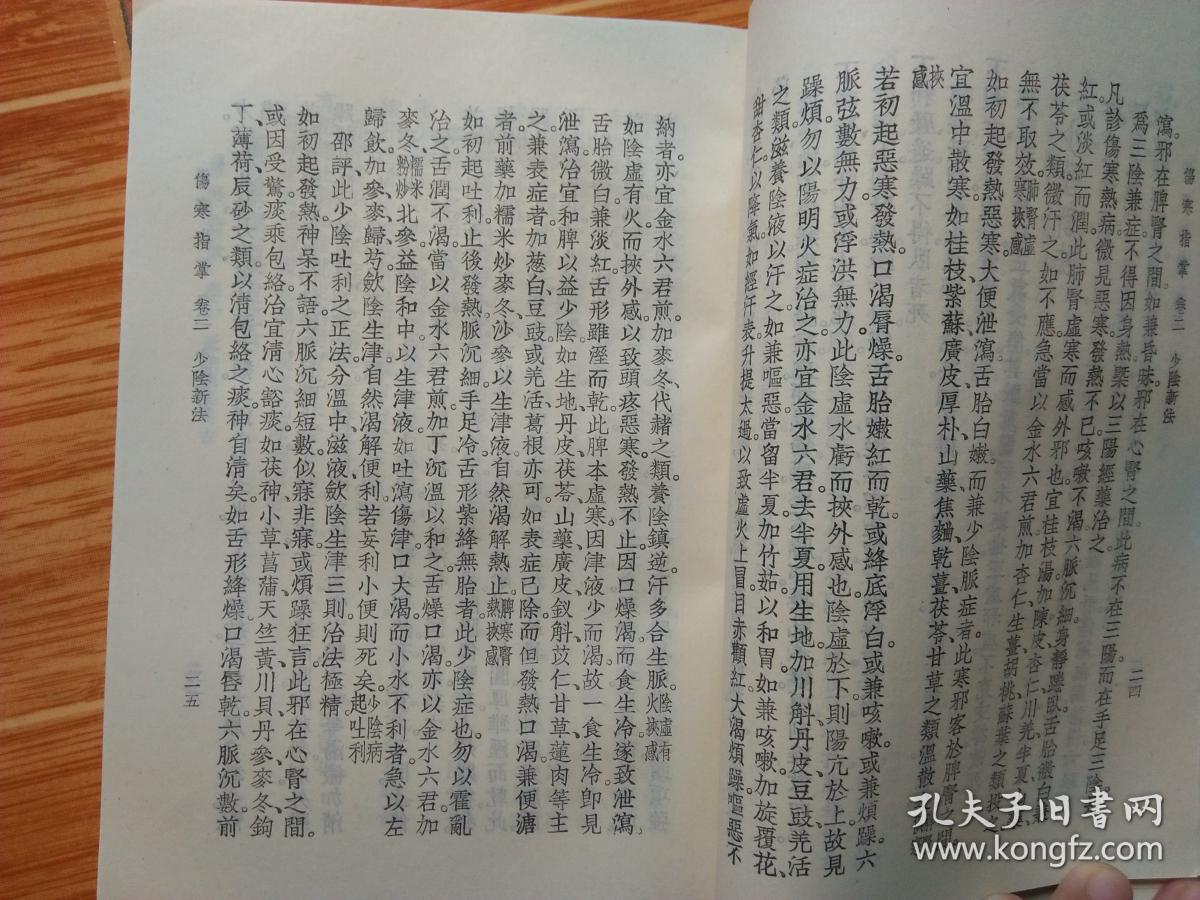 傷寒指掌 卷三 少陰新法 二四
瀉。邪在脾腎之間。如兼昏昧。邪在心腎之間。此病不在三陽。而在手足三陰。
爲三陰兼症。不得因身熱槩以三陽經藥治之
凡診傷寒熱病。微見惡寒。發熱不已。咳嗽不渴。六脈沉細。身靜
紅。或淡紅而潤。此肺腎虛寒而感外邪也。宜桂枝湯加陳皮、杏仁、川羌、半夏、
茯苓之類。微汗之。如不應。急當以金水六君煎。加杏仁、生薑、胡桃、蘇葉之類
無不取效。肺腎虛寒挾感
如初起發熱惡寒。大便泄瀉。舌胎白嫩。而兼少陰脈症者。此寒邪客於脾腎
宜溫中散寒。如桂枝、紫蘇、廣皮、厚朴、山藥、焦麯、乾薑、茯苓、甘草之類。溫散
挾感
若初起惡寒發熱。口渴脣燥。舌胎嫩紅而乾。或絳底浮白。或兼咳嗽。或兼煩躁。六
脈弦數無力。或浮洪無力。此陰虛水虧而挾外感也。陰虛於下。則陽亢於上。故見
躁煩。勿以陽明火症治之。亦宜金水六君。去半夏。用生地。加川斛、丹皮、豆豉、羌活
之類。滋養陰液以汗之。如兼嘔惡。當留半夏。加竹茹以和胃。如兼咳嗽。加旋覆花、
甜杏仁以降氣。如經汗表。升提太過。以致虛火上冒。目赤顴紅。大渴煩躁。嘔惡不
納者。亦宜金水六君煎。加麥冬、代赭之類。養陰鎮逆。汗多合生脈。陰虛有火挾感
如陰虛有火而挾外感。以致頭疼惡寒。發熱不止。因口燥渴而食生冷。遂致泄瀉。
舌胎微白兼淡紅。舌形雖溼而乾。此脾本虛寒。因津液少而渴。故一食生冷。卽見
泄瀉。治宜和脾以益少陰。如生地、丹皮、茯苓、山藥、廣皮、釵斛、苡仁、甘草、蓮肉等主
之。兼表症者。加葱白、豆豉。或羌活、葛根亦可。如表症已除。而但發熱口渴。兼便溏
者。前藥加糯米炒麥冬、沙參以生津液。自然渴解熱止。脾寒腎熱挾感
如初起吐利止後。發熱脈沉細。手足冷。舌形紫絳無胎者。此少陰症也。勿以霍亂
治之。舌潤不渴。當以金水六君煎。加丁、沉溫以和之。舌燥口渴。亦以金水六君。加
麥冬、糯米粉炒北參。益陰和中以生津液。如吐瀉傷津。口大渴而小水不利者。急以左
歸飲。加參、麥、歸、芍。歛陰生津。自然渴解便利。若妄利小便則死矣。少陰病起吐利
邵評。此少陰吐利之正法。分溫中、滋液、歛陰生津三則。治法極精。
如初起發熱。神呆不語。六脈沉細短數。似寐非寐。或煩躁狂言。此邪在心腎之間。
或因受驚。痰乘包絡。治宜淸心豁痰。如茯神、小草、菖蒲、天竺黃、川貝、丹參、麥冬、鉤
丁、薄荷、辰砂之類。以淸包絡之痰。神自淸矣。如舌形絳燥。口渴脣乾。六脈沉數。前
傷寒指掌 卷三 少陰新法 二五
孔夫子旧書网
www.kongfz.com